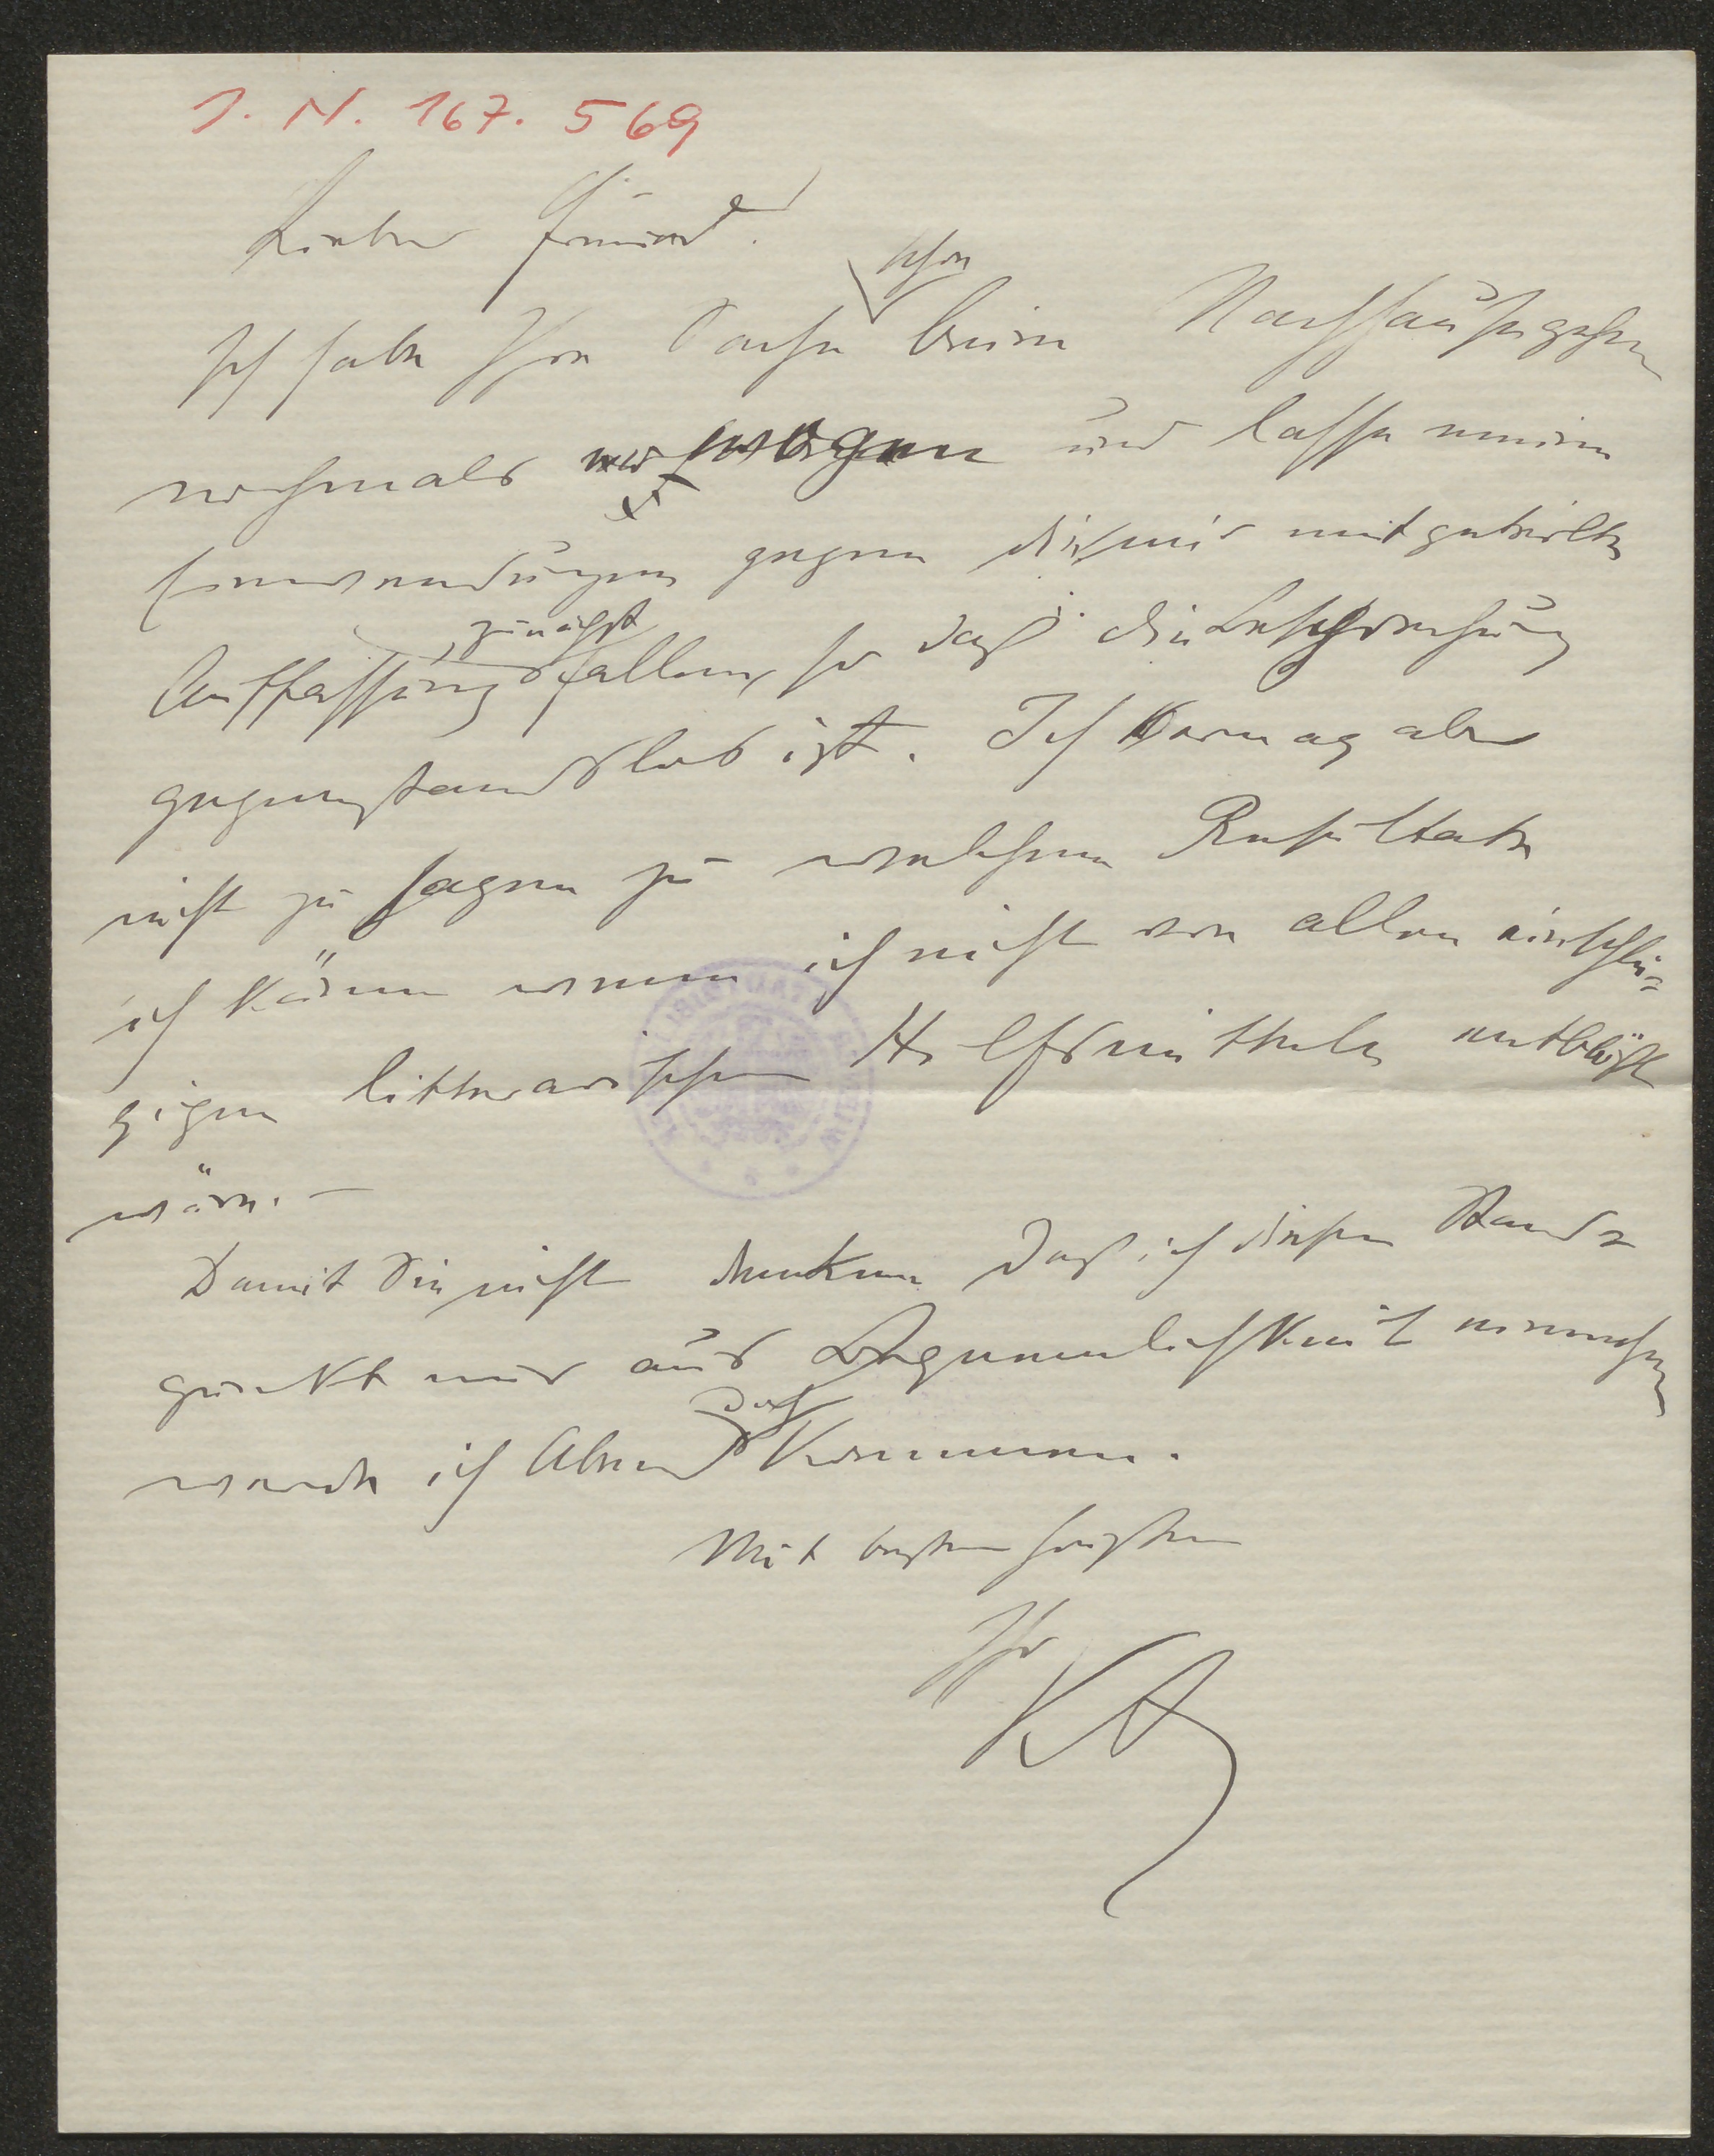 J. N. 167.569
Lieber Freund.
Ich habe Ihre Sache schon beim Nachhausegehen
nochmals erwogen und lasse meine
Einwendungen gegen die mir mitgeteilte
Auffassung zunächst fallen, so daß die Besprechung
gegenstandslos ist. Ich vermag aber
nicht zu sagen zu welchem Resultate
ich käme wenn ich nicht von allen einschlä=
gigen litterarischen Hilfsmitteln entblößt
wäre. –
Damit Sie nicht denken daß ich diesen Stand=
punkt nur aus Bequemlichkeit einnehme
werde ich Abend doch kommen.
Mit besten Grüßen
Ihr